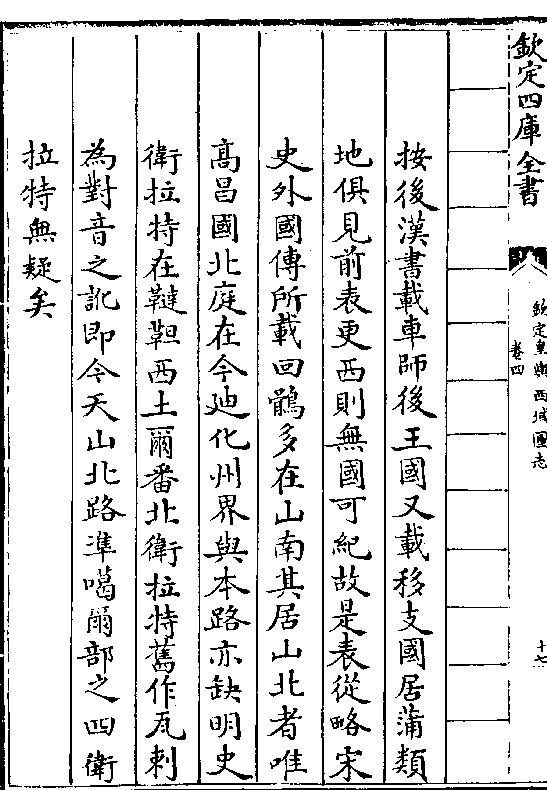 欽定四庫全書
欽定皇輿西域圖志
卷四
十七
按後漢書載車師後王國又載移支國居蒲類
地俱見前表更西則無國可紀故是表從略宋
史外國傳所載回鶻多在山南其居山北者唯
高昌國北庭在今廸化州界與本路亦缺明史
衛拉特在韃靼西土爾番北衛拉特舊作瓦剌
為對音之訛即今天山北路準噶爾部之四衛
拉特無疑矣